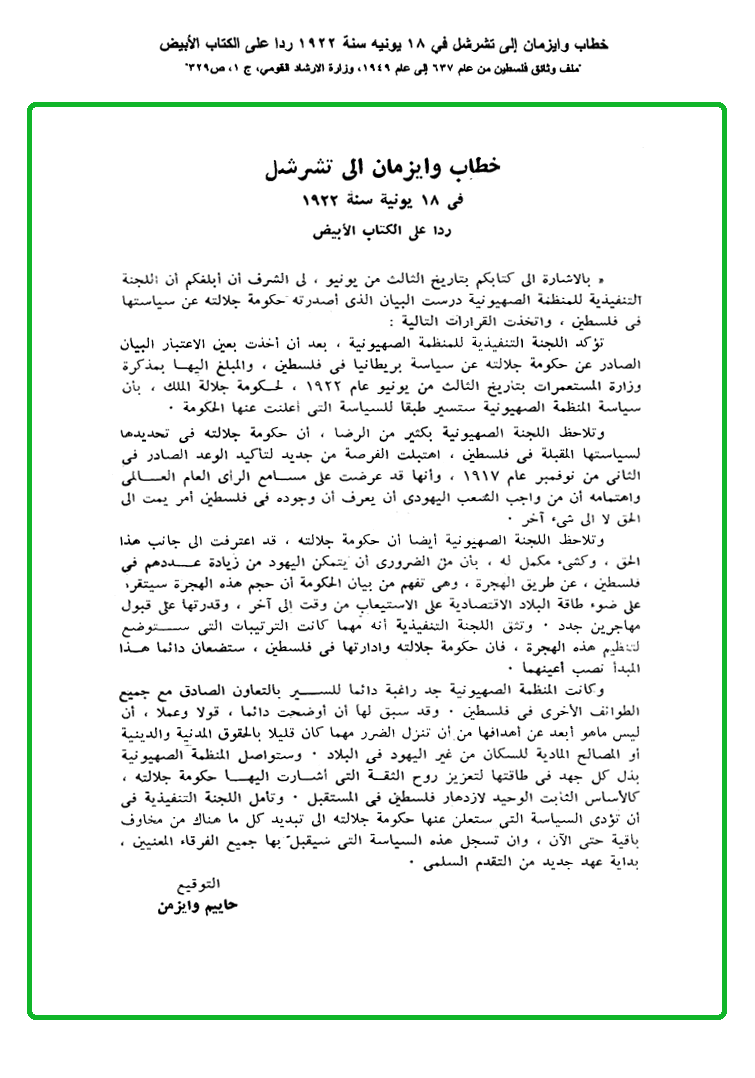 خطاب وايزمان إلى تشرشل في ١٨ يونيه سنة ١٩٢٢ ردا على الكتاب الأبيض
"ملف وثائق فلسطين من عام ٦٣٧ إلى عام ١٩٤٩، وزارة الارشاد القومي، ج ١، ص٣٢٩"
خطاب وايزمان الى تشرشل
فى ١٨ يونية سنة ١٩٢٢
ردا على الكتاب الأبيض
« بالاشارة الى كتابكم بتاريخ الثالث من يونيو ، لى الشرف أن أبلغكم أن اللجنة
التنفيذية للمنظمة الصهيونية درست البيان الذى أصدرته حكومة جلالته عن سياستها
فى فلسطين ، واتخذت القرارات التالية :
تؤكد اللجنة التنفيذية للمنظمة الصهيونية ، بعد أن أخذت بعين الاعتبار البيان
الصادر عن حكومة جلالته عن سياسة بريطانيا فى فلسطين ، والمبلغ اليها بمذكرة
وزارة المستعمرات بتاريخ الثالث من يونيو عام ١٩٢٢ ، لحكومة جلالة الملك ، بأن
سياسة المنظمة الصهيونية ستسير طبقا للسياسة التى أعلنت عنها الحكومة ٠
وتلاحظ اللجنة الصهيونية بكثير من الرضا ، أن حكومة جلالته فى تحديدها
لسياستها المقبلة فى فلسطين ، اهتبلت الفرصة من جديد لتأكيد الوعد الصادر فى
الثانى من نوفمبر عام ١٩١٧ ، وأنها قد عرضت على مسامع الرأى العام العـالمى
واهتمامه أن من واجب الشعب اليهودى أن يعرف أن وجوده فى فلسطين أمر يمت الى
الحق لا الى شىء آخر ٠
وتلاحظ اللجنة الصهيونية أيضا أن حكومة جلالته ، قد اعترفت الى جانب هذا
الحق ، وكشىء مكمل له ، بأن من الضرورى أن يتمكن اليهود من زيادة عـددهم فى
فلسطين ، عن طريق الهجرة ، وهى تفهم من بيان الحكومة أن حجم هذه الهجرة سيتقرر
على ضوء طاقة البلاد الاقتصادية على الاستيعاب من وقت إلى آخر ، وقدرتها على قبول
مهاجرين جدد ٠ وتثق اللجنة التنفيذية أنه مهما كانت الترتيبات التى ستوضع
لتنظيم هذه الهجرة ، فان حكومة جلالته وادارتها فى فلسطين ، ستضعان دائما هـذا
المبدأ نصب أعينهما ٠
وكانت المنظمة الصهيونية جد راغبة دائما للسـير بالتعاون الصادق مع جميع
الطوائف الأخرى فى فلسطين ٠ وقد سبق لها أن أوضحت دائما ، قولا وعملا ، أن
ليس ماهو أبعد عن أهدافها من أن تنزل الضرر مهما كان قليلا بالحقوق المدنية والدينية
أو المصالح المادية للسكان من غير اليهود فى البلاد ٠ وستواصل المنظمة الصهيونية
بذل كل جهد فى طاقتها لتعزيز روح الثقة التى أشـارت اليهـا حكومة جلالته ،
كالأساس الثابت الوحيد لازدهار فلسطين فى المستقبل ٠ وتأمل اللجنة التنفيذية فى
أن تؤدى السياسة التى ستعلن عنها حكومة جلالته الى تبديد كل ما هناك من مخاوف
باقية حتى الآن ، وان تسجل هذه السياسة التى سيقبل بها جميع الفرقاء المعنيين ،
بداية عهد جديد من التقدم السلمى ٠
التوقيع
حاييم وايزمن